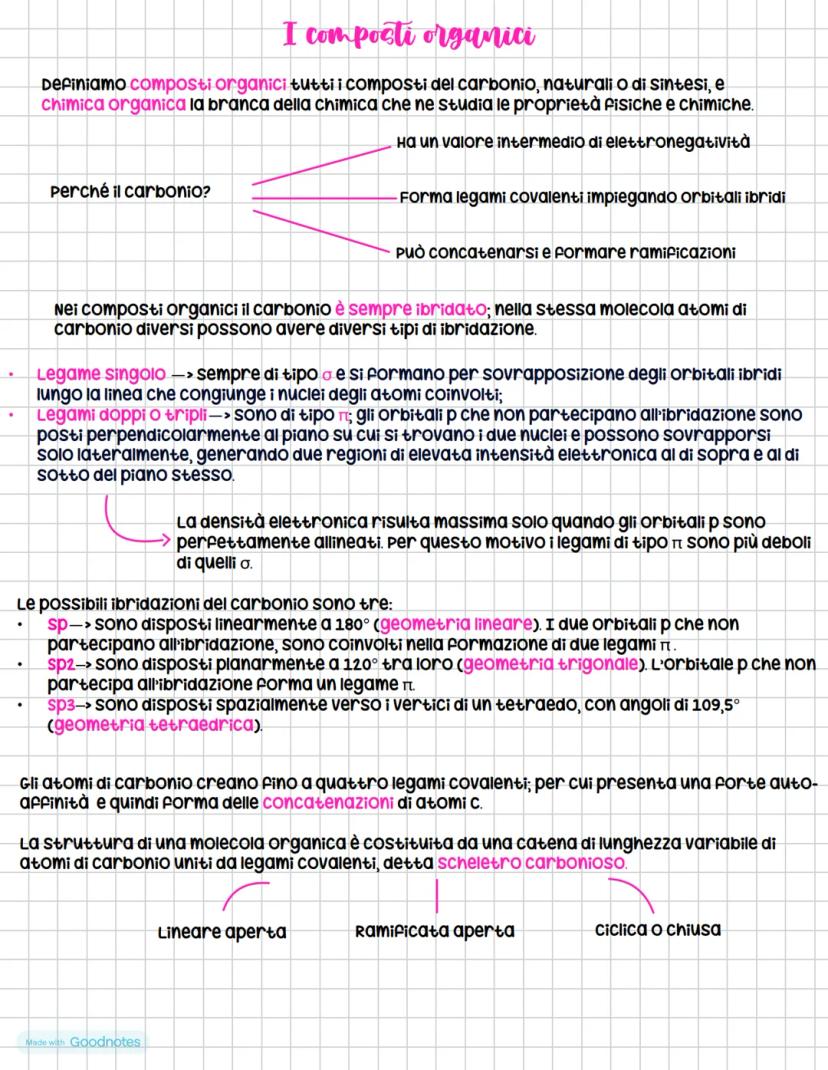 I composti organici
Definiamo composti organici tutti i composti del carbonio, naturali o di sintesi, e
chimica organica la branca della chimica che ne studia le proprietà fisiche e chimiche.
Ha un valore intermedio di elettronegatività
Perché il carbonio?
Forma legami covalenti impiegando orbitali ibridi
Può concatenarsi e formare ramificazioni
Nei composti organici il carbonio è sempre ibridato; nella stessa molecola atomi di
carbonio diversi possono avere diversi tipi di ibridazione.
• Legame singolo —> sempre di tipo σ e si formano per sovrapposizione degli orbitali ibridi
lungo la linea che congiunge i nuclei degli atomi coinvolti;
• Legami doppi o tripli—> sono di tipo π; gli orbitali p che non partecipano all'ibridazione sono
posti perpendicolarmente al piano su cui si trovano i due nuclei e possono sovrapporsi
solo lateralmente, generando due regioni di elevata intensità elettronica al di sopra e al di
sotto del piano stesso.
La densità elettronica risulta massima solo quando gli orbitali p sono
perfettamente allineati. Per questo motivo i legami di tipo π sono più deboli
di quelli σ.
Le possibili ibridazioni del carbonio sono tre:
• sp—> sono disposti linearmente a 180° (geometria lineare). I due orbitali p che non
partecipano all'ibridazione, sono coinvolti nella formazione di due legami π.
• sp2—> sono disposti planarmente a 120° tra loro (geometria trigonale). L'orbitale p che non
partecipa all'ibridazione forma un legame π.
• sp3—> sono disposti spazialmente verso i vertici di un tetraedo, con angoli di 109,5°
(geometria tetraedrica).
Gli atomi di carbonio creano fino a quattro legami covalenti; per cui presenta una forte auto-
affinità e quindi forma delle concatenazioni di atomi C.
La struttura di una molecola organica è costituita da una catena di lunghezza variabile di
atomi di carbonio uniti da legami covalenti, detta scheletro carbonioso.
Lineare aperta
Ramificata aperta
Ciclica o chiusa
Made with Goodnotes